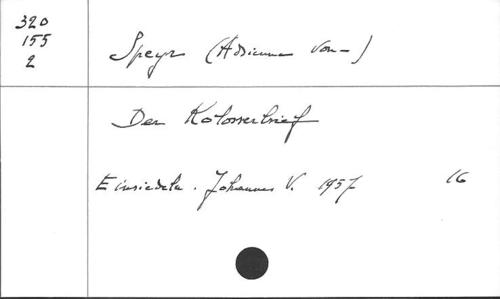 320
155
2
Speyr (Adrienne von-)
Der Kolosserbrief
Einsiedeln. Johannes V. 1957 16